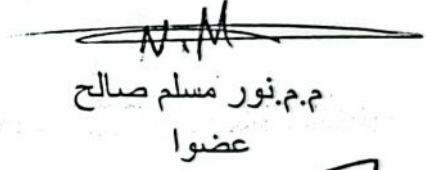 N.M
م.م.نور مسلم صالح
عضوا